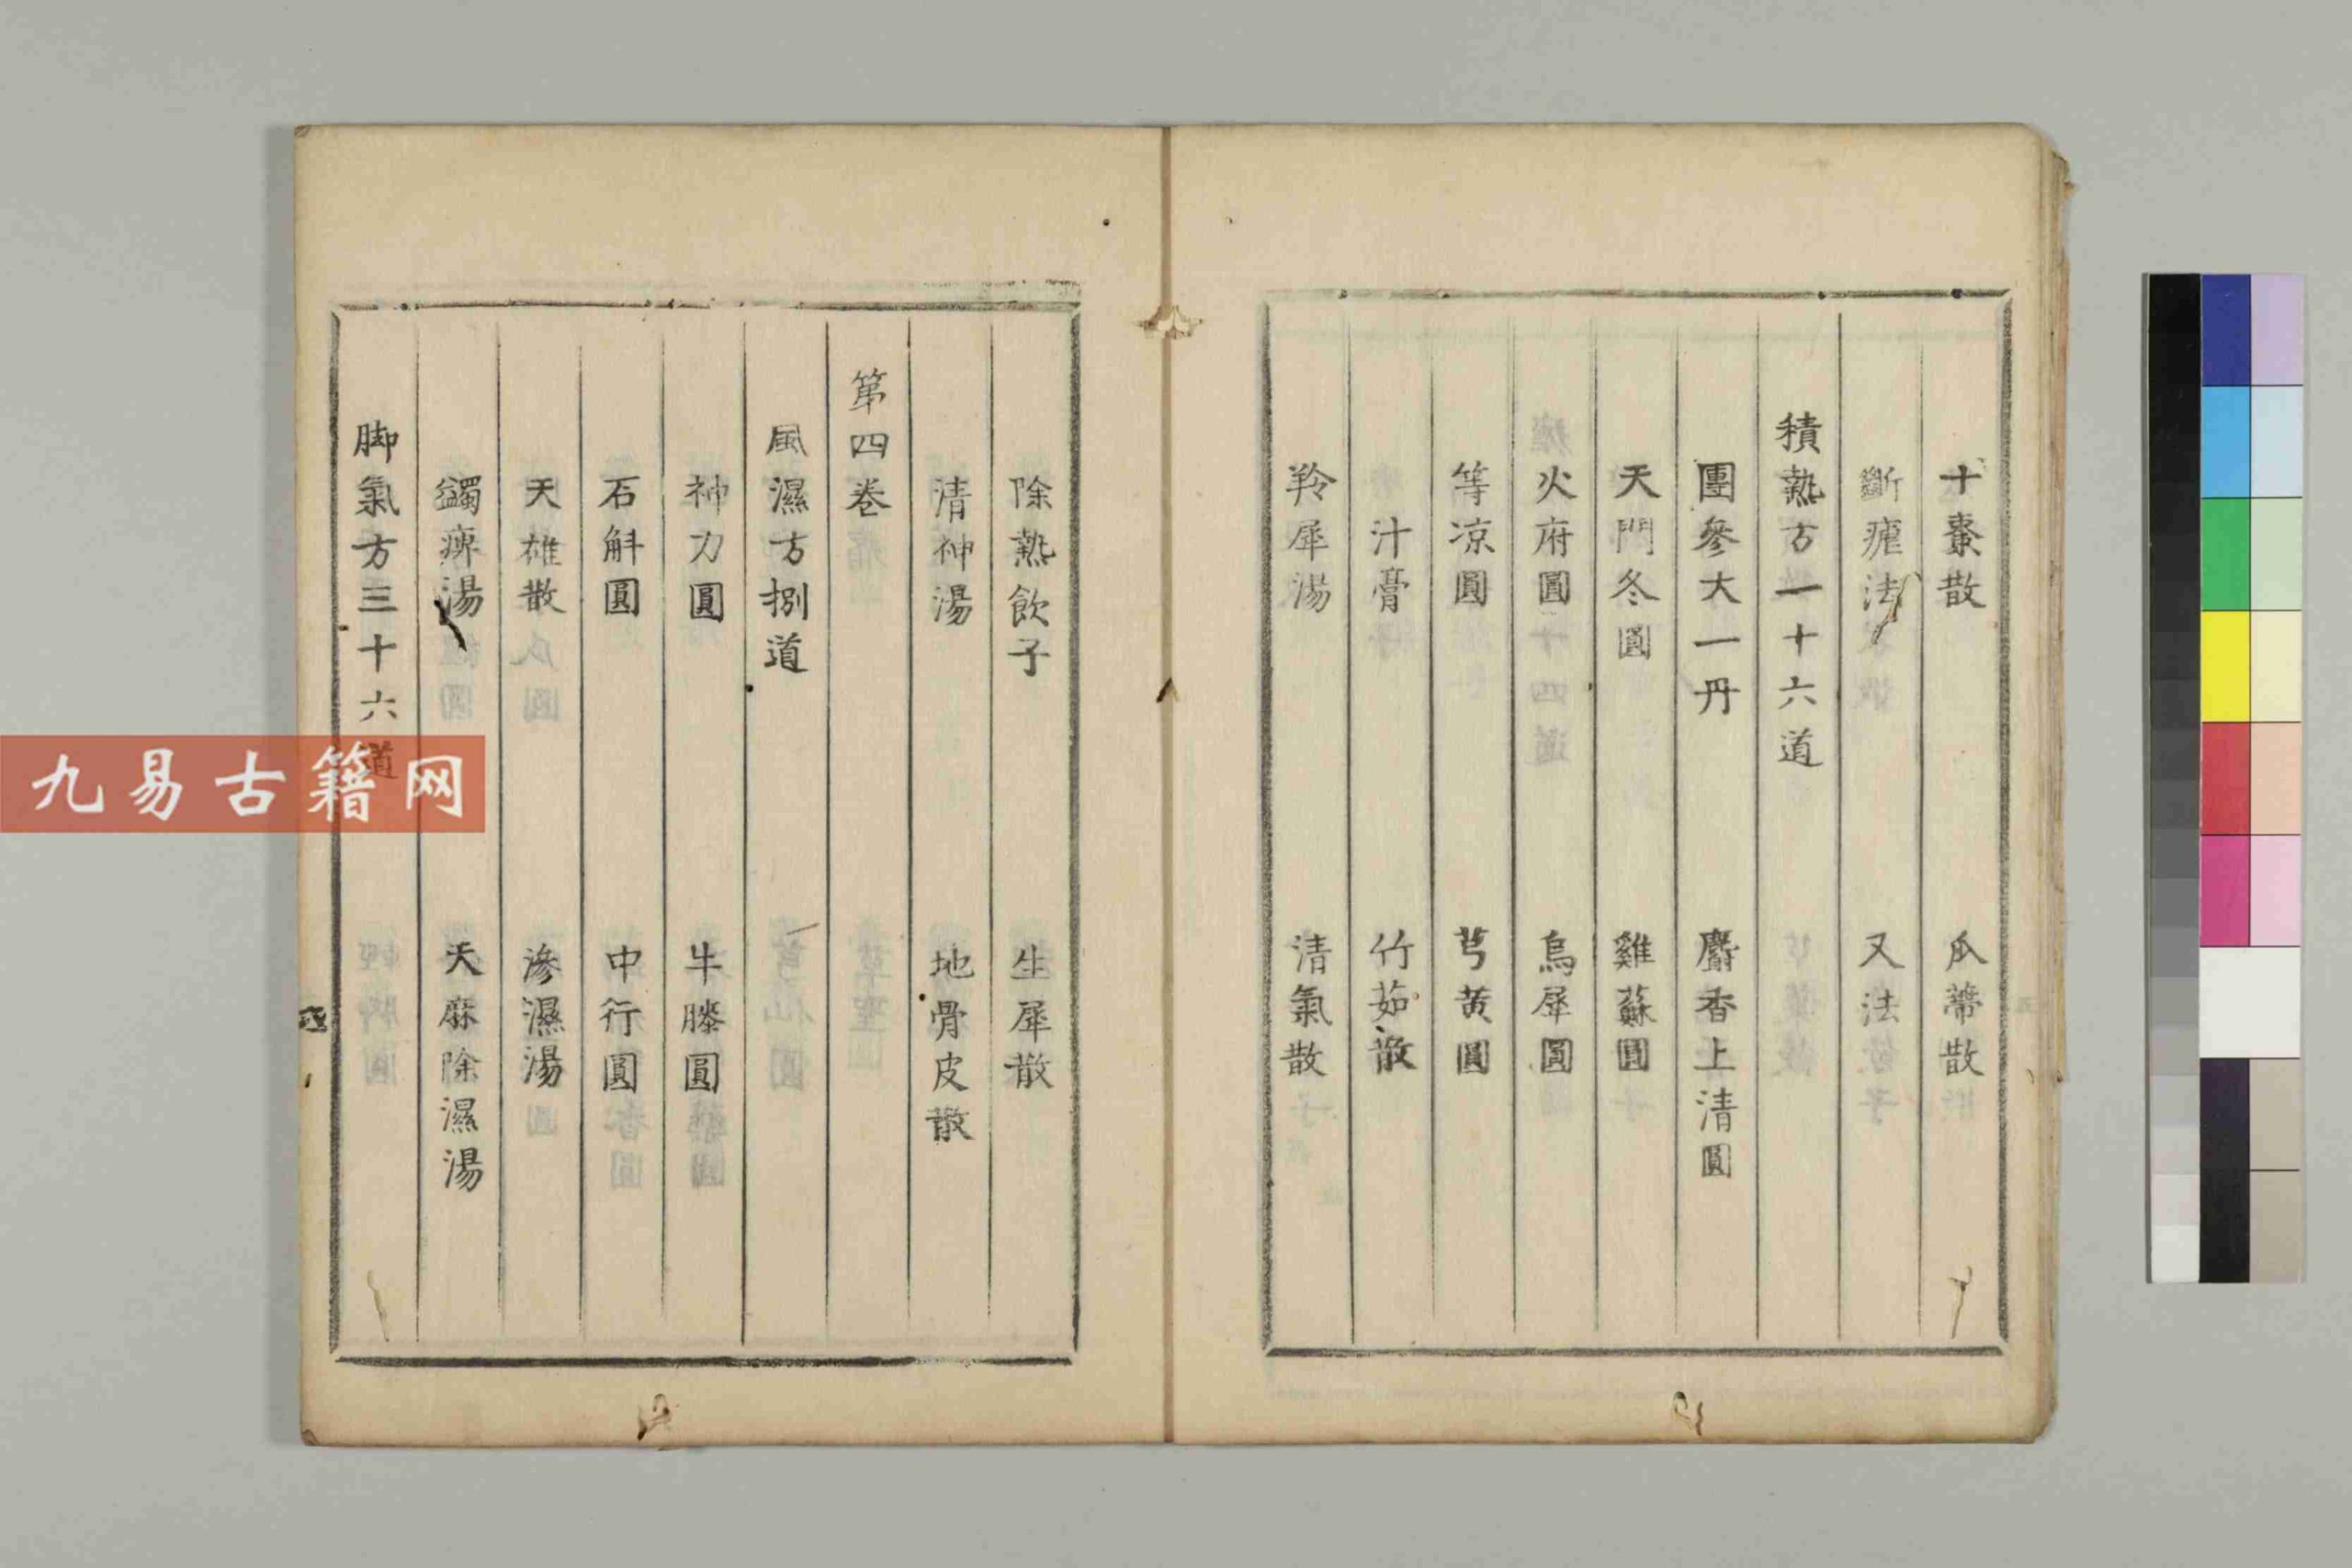 十棗散 瓜蔕散
斷瘧法 又法
積熱方一十六道
團參大一丹 麝香上清圓
天門冬圓 雞蘇圓
火府圓 烏犀圓
等凉圓 芎黃圓
汁膏 竹茹散
羚犀湯 清氣散
除熱飲子 生犀散
清神湯 地骨皮散
第四卷
風濕方捌道
神力圓 牛膝圓
石斛圓 中行圓
天雄散 滲濕湯
蠲痹湯 天麻除濕湯
脚氣方三十六道
九易古籍网